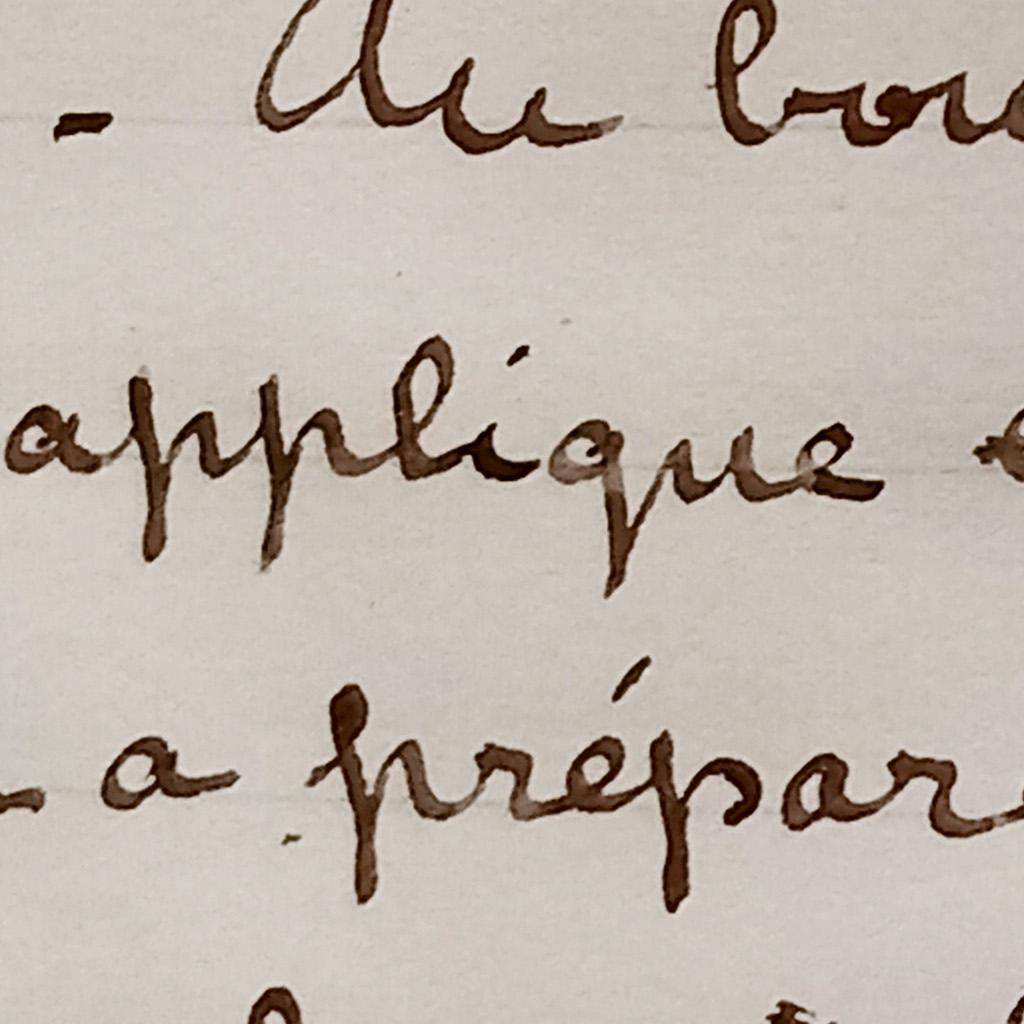 - Au bou
applique
a prépar